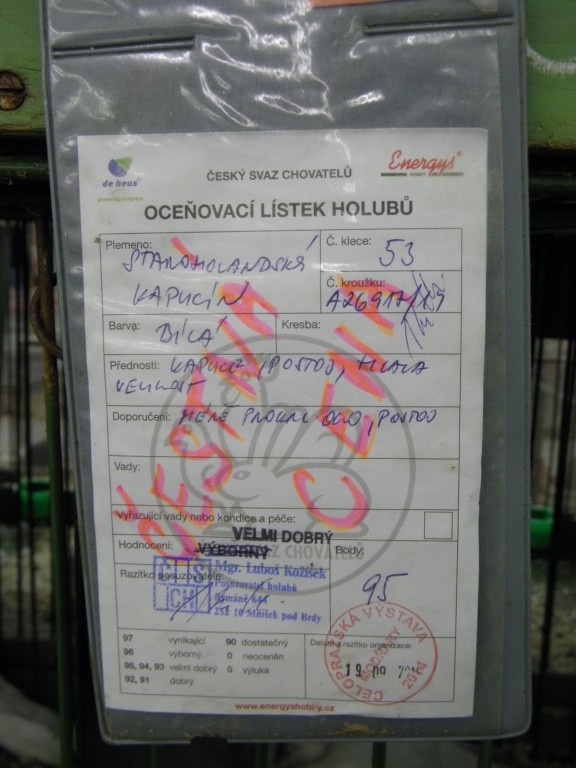 de heus
powering progress
ČESKÝ SVAZ CHOVATELŮ
Energys
OCEŇOVACÍ LÍSTEK HOLUBŮ
Plemeno: STAROHOLANDSKÝ KAPUCÍN
Č. klece: 53
Č. kroužku:
Barva: BÍLÁ
Kresba:
Přednosti: KAPUCE, POSTOJ, HLAVA
VELIKOST
Doporučení: MÉNĚ PROKRV. OKO, POSTOJ
Vady:
Vyřazující vady nebo kondice a péče:
VELMI DOBRÝ
Hodnocení: VÝBORNÝ
Body: 95
SVAZ CHOVATELŮ
Razítko posuzovatele:
Mgr. Luboš Kožíšek
Posuzovatel holubů
252 10 Mníšek pod Brdy
ČESTNÁ CENA
97 vynikající 90 dostatečný
96 výborný 0 neoceněn
95, 94, 93 velmi dobrý 0 výluka
92, 91 dobrý
Datum a razítko organizace:
CELOPRAŽSKÁ VÝSTAVA
2014
19 09
www.energyshobby.cz